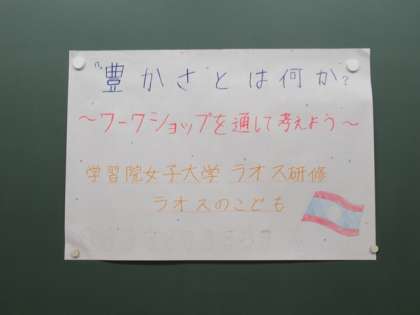 "豊かさとは何か?
～ワークショップを通して考えよう～
学習院女子大学 ラオス研修
ラオスのこども